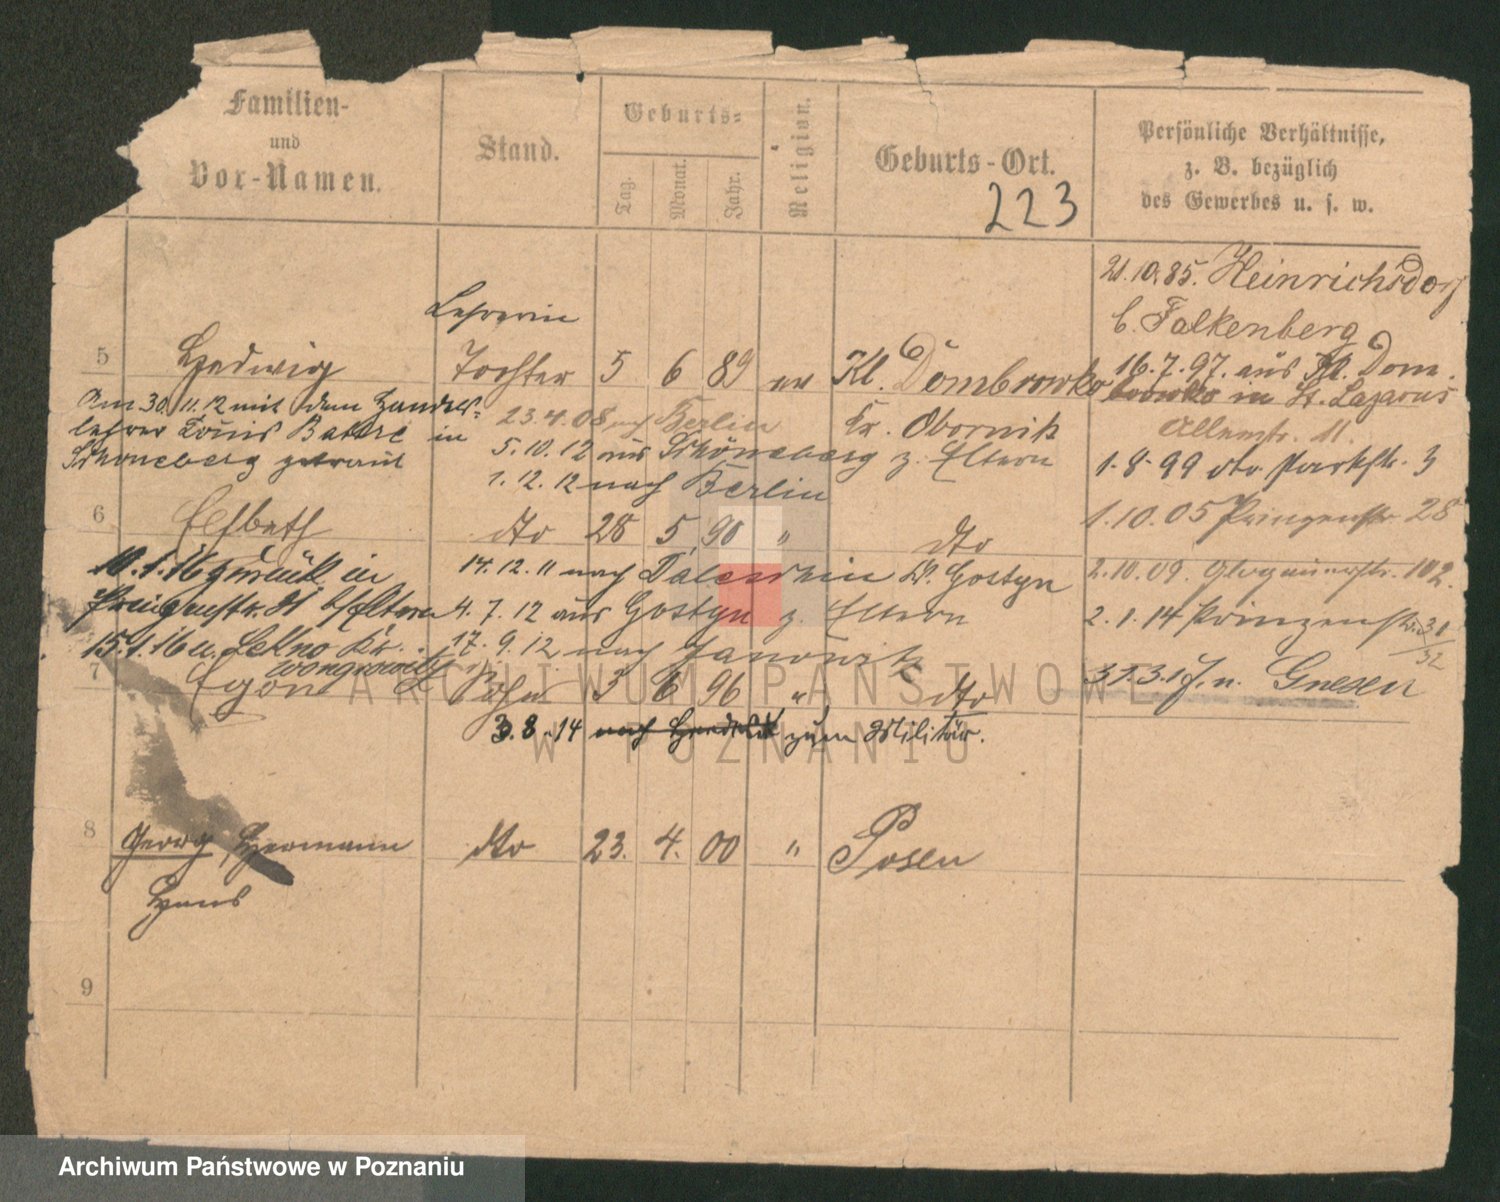 Familien-
und
Vor-Namen.
Stand.
Geburts-
Tag.
Monat.
Jahr.
Religion.
Geburts-Ort.
223
Persönliche Verhältnisse,
z. B. bezüglich
des Gewerbes u. s. w.
21.10.85. Heinrichsdorf
b. Falkenberg
Lehrerin
5 Hedwig Tochter 5 6 89 ev Kl. Dombrowko
16.7.97. aus Kl. Dom-
browko in St. Lazarus
Am 30.11.12 mit dem Handels-
lehrer Louis in
Schöneberg getraut
23.4.08 nach Berlin
Kr. Obornik
Allerstr. 11.
5.10.12 aus Schöneberg z. Eltern
1.8.99 dto Parkstr. 3
1.12.12 nach Berlin
6 Elsbeth dto 28 5 90 " dto
1.10.05 Prinzenstr. 28
10.1.16 zurück in
Prinzenstr. 31 b/Eltern
14.12.11 nach Kr. Gostyn
2.10.09. Glogauerstr. 102.
4.7.12 aus Gostyn z. Eltern
2.1.14 Prinzenstr. 31/32
15.1.16 n. Lekno Kr.
Wongrowitz
17.9.12 nach Janowitz
7 Egon Sohn 3 6 96 " dto
31.3.17. n. Gnesen
3.8.14 nach zum Militär.
8 Georg Hermann dto 23. 4. 00 " Posen
Hans
9
ARCHIWUM PAŃSTWOWE
W POZNANIU
Archiwum Państwowe w Poznaniu